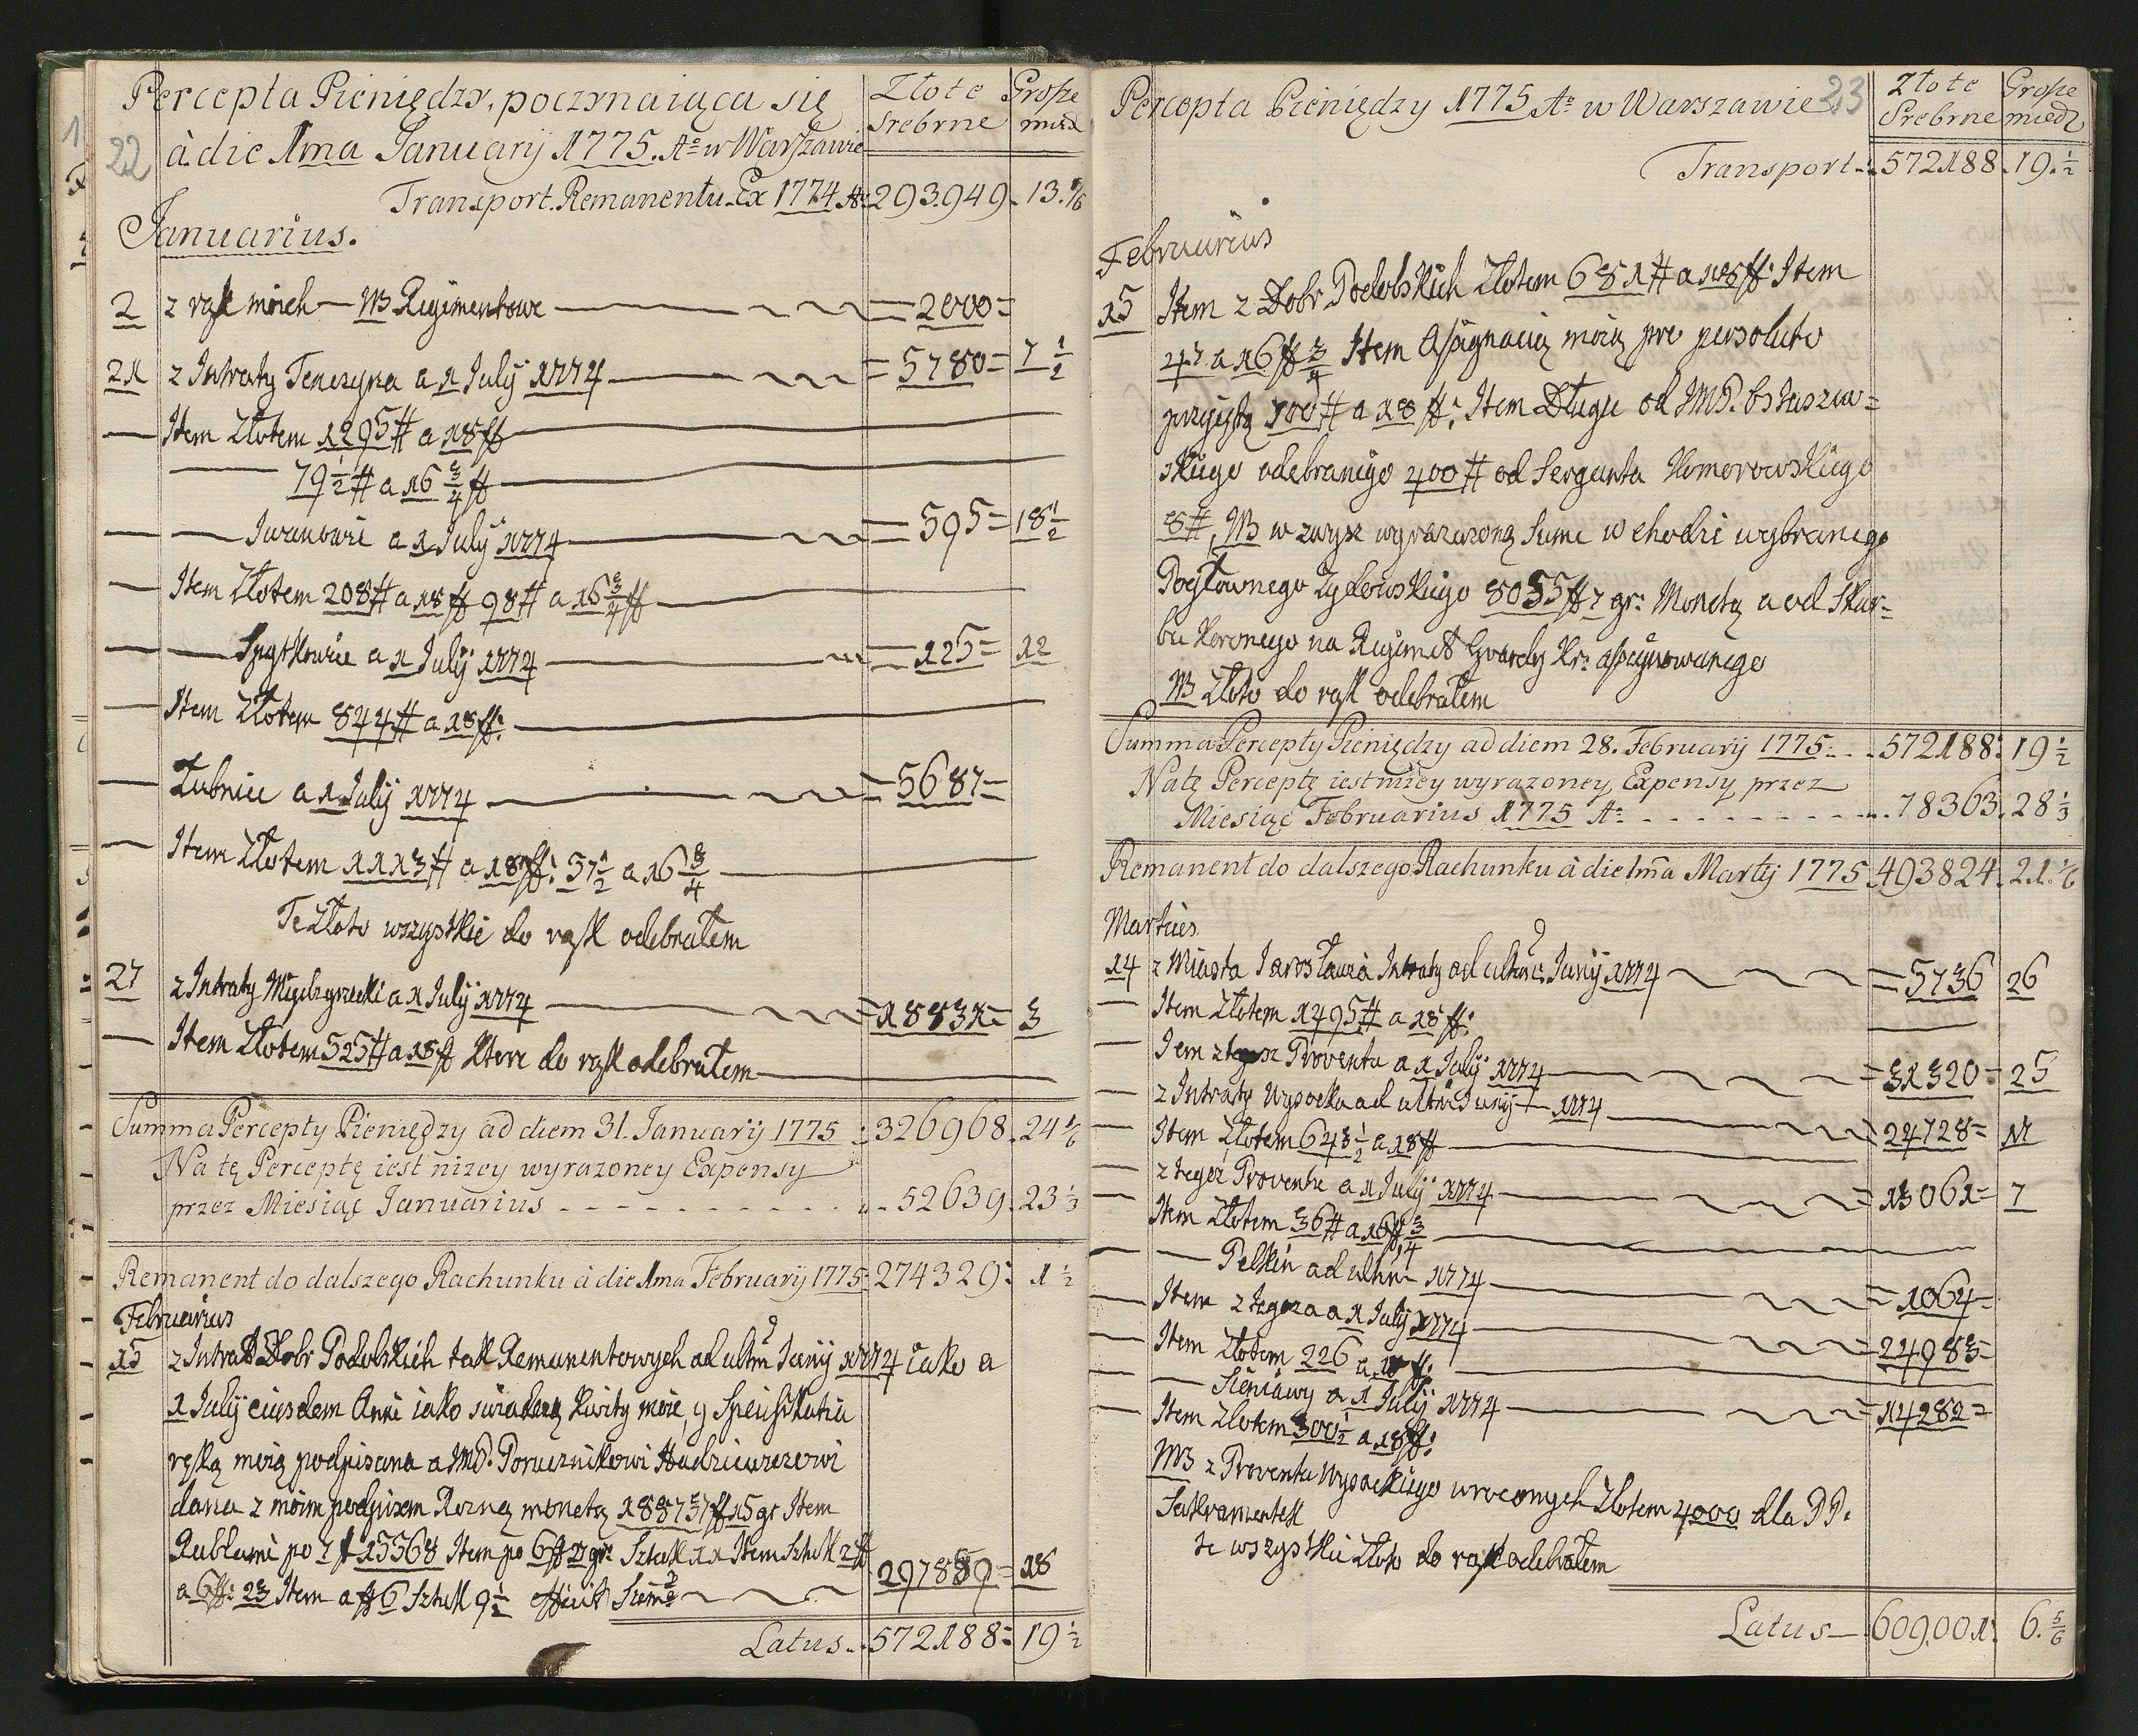 Percepta Pieniędzy, poczynaiąca się Złote Grosze
22 à die 1ma Januarij 1775. Aº w Warszawie Srebrne miedz
Transport. Remanentu Ex 1774 Aº 293.949. 13. 1/6
Januarius.
2 z rąk moich — NB Regimentowe = 2000 =
21 z Intraty Tenczyna a 1 July 1774 = 5780 = 7 1/2
Item Złotem 1295 # a 18 ff
79 1/2 # a 16 3/4 ff
Iwanowic a 1 July 1774 = 595 = 18 1/2
Item Złotem 208 # a 18 ff 98 # a 16 3/4 ff
Spytkowic a 1 July 1774 = 125 = 12
Item Złotem 844 # a 18 ff:
Łubnic a 1 July 1774 = 5687 =
Item Złotem 1113 # a 18 ff: 37 1/2 a 16 3/4
Te Złoto wszystkie do rąk odebrałem
27 z Intraty Międzyrzecki a 1 July 1774 = 18831 = 3
Item Złotem 525 # a 18 ff które do rąk odebrałem
Summa Percepty Pieniędzy ad diem 31. Januarij 1775 326968. 24 1/6
Na tę Perceptę iest niżey wyrazoney Expensy
przez Miesiąc Januarius 52639. 23 1/3
Remanent do dalszego Rachunku à die 1ma Februarij 1775 274329: 1 1/2
Februarius
15 z Intrat Dobr Podolskich tak Remanentowych ad ultm Junij 1774 iako a
1 July eiusdem Anni iako swiadczą kwity moie, y Specifikatia
ręką moią podpisana a JMP. Porucznikowi
dana z moim podpisem Rozną monetą 188737 ff 15 gr Item
Rublami po 7 ff 15568 Item po 6 ff gr: Sztuk 11 Item Sztuk 2
a 6 ff: 23 Item a ff 6 Sztuk 9 1/2 efficit Summa 297859 = 18
Latus.. 572188 = 19 1/2
Percepta Pieniędzy 1775 Aº w Warszawie 23 Złote Grosze
Srebrne miedz
Transport.. 572188. 19. 1/2
Februarius
15 Item z Dobr Podolskich Złotem 681 # a 18 ff: Item
47 a 16 ff 3/4 Item Assignacią moią pro persoluto
przyiętą 700 # a 18 ff: Item Długu od JMP.
skiego odebranego 400 # od Serganta Komorowskiego
8 #, NB w zwysz wyrazoną Sume wchodzi wybranego
Pogłownego Zydowskiego 8055 ff 7 gr: Monetą a od Skar=
bu Koronego na Regiment Gwardy Kr: assygnowanego
NB Złoto do rąk odebrałem
Summa Percepty Pieniędzy ad diem 28. Februarij 1775. 572188: 19 1/2
Na tę Perceptę iest niżey wyrazoney Expensy przez
Miesiąc Februarius 1775 Aº 78363. 28 1/3
Remanent do dalszego Rachunku à die 1ma Martij 1775 493824. 21. 1/6
Martius
14 z Miasta Jarosławia Intraty ad ultim: Junij 1774 = 5736 26
Item Złotem 1495 # a 18 ff:
Item z tegoz Proventu a 1 July 1774 = 31320 = 25
z Intraty Wysocka ad ultim Junij 1774 = 24728 = 11
Item Złotem 643 1/2 a 18 ff
z tegoż Proventu a 1 July 1774 = 13061 = 7
Item Złotem 36 # a 16 ff 3/4
Pelkiń ad ultim 1774 = 1064 =
Item z tegoz a 1 July 1774 = 24983 =
Item Złotem 226 a 18 ff:
Sieniawy a 1 July 1774 = 14282 =
Item Złotem 300 1/2 a 18 ff:
NB z Proventu Wysockiego wroconych Złotem 4000 dla PP.
Sakramentek
te wszystkie Złoto do rąk odebrałem
Latus 609.001. 6. 5/6